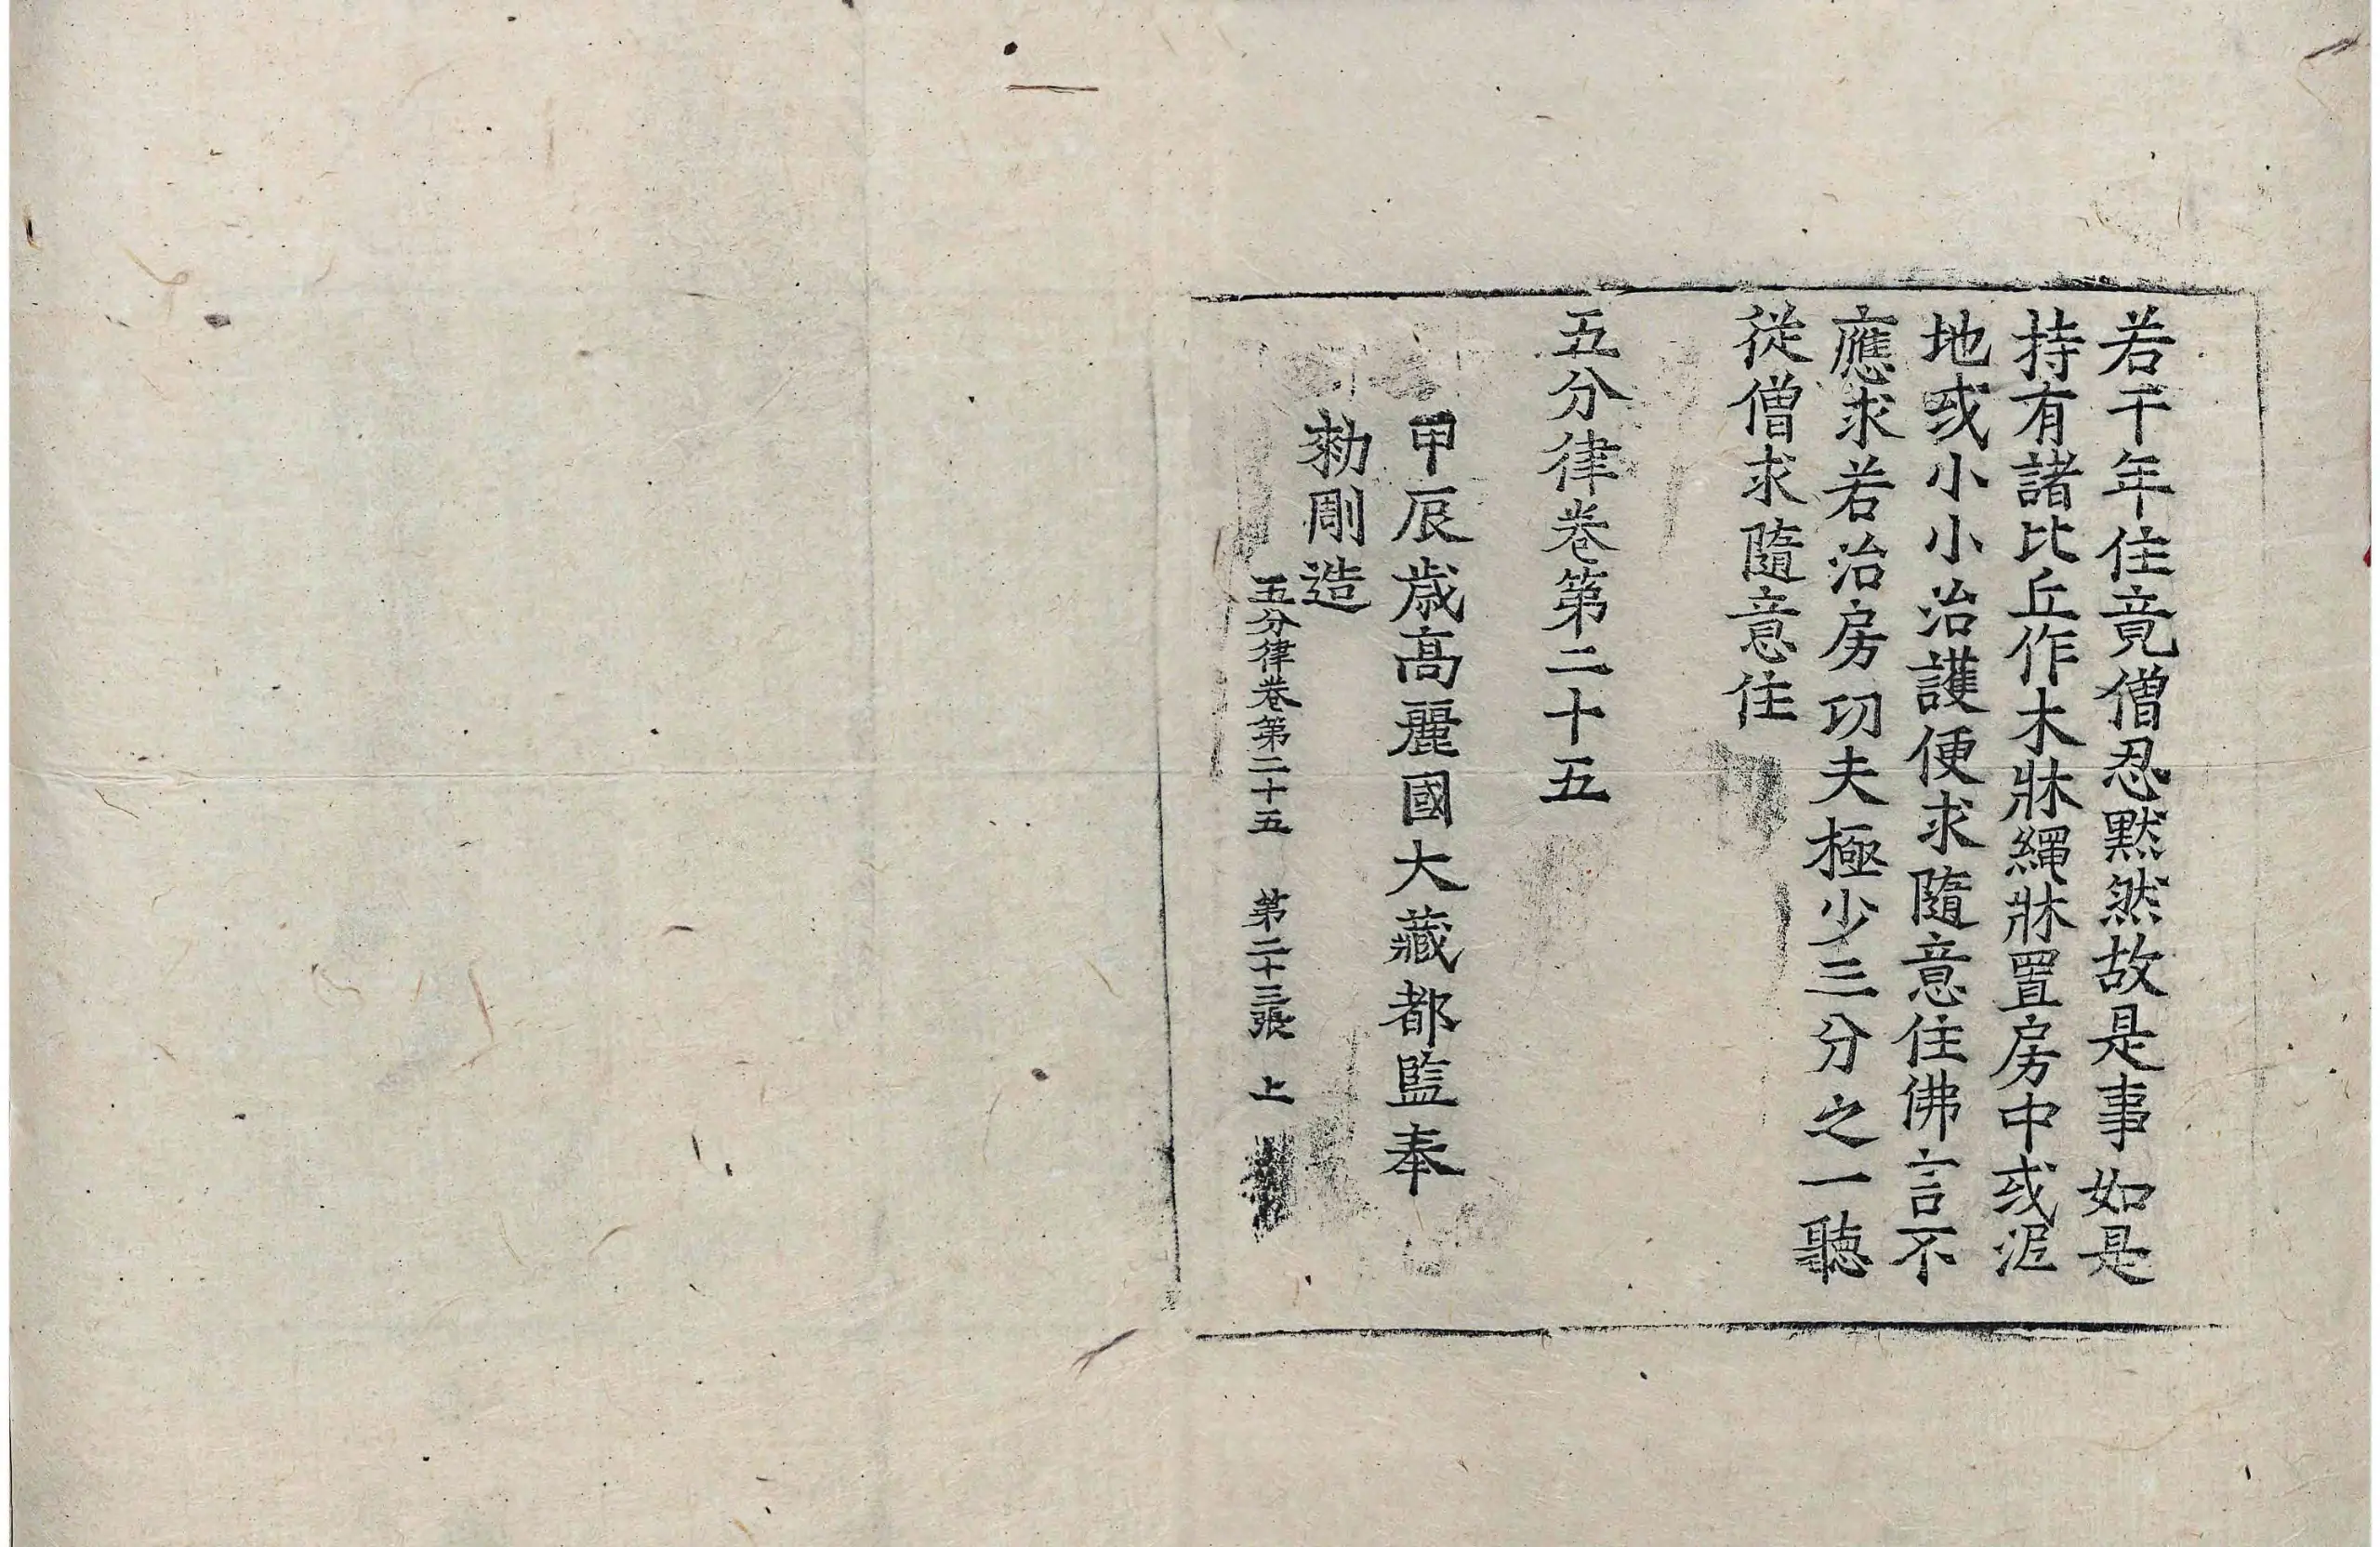 若干年住竟僧忍默然故是事如是
持有諸比丘作木牀繩牀置房中或泥
地或小小治護便求隨意住佛言不
應求若治房功夫極少三分之一聽
從僧求隨意住
五分律卷第二十五
甲辰歲高麗國大藏都監奉
勑彫造
五分律卷第二十五　第二十三張　上